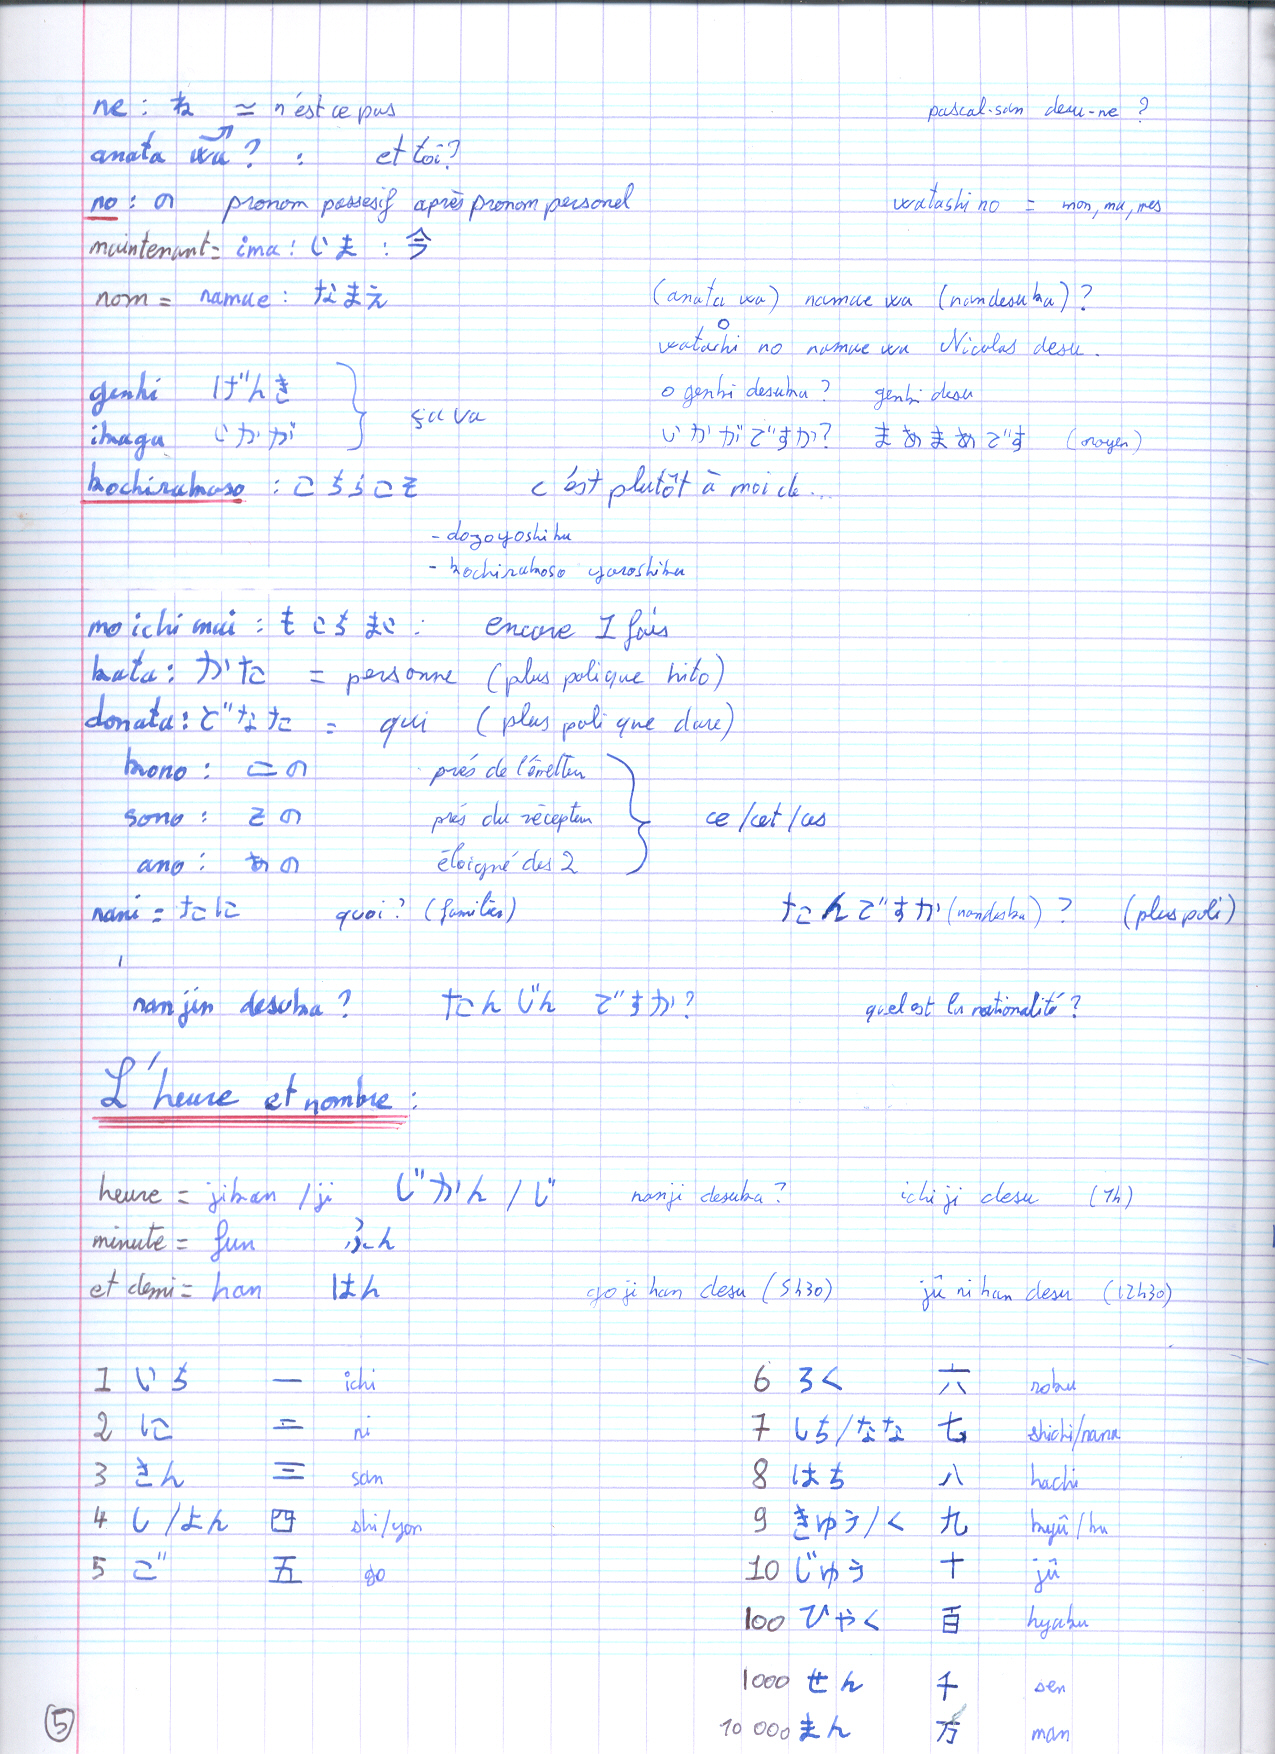 ne : ね ≃ n'est ce pas pascal-san desu-ne ?
anata wa ? : et toi ?
no : の pronom possesif après pronom personel watashi no = mon, ma, mes
maintenant = ima : いま : 今
nom = namae : なまえ (anata wa) namae wa (nandesuka) ?
watashi no namae wa Nicolas desu.
genki げんき o genki desuka ? genki desu
ikaga いかが ça va いかがですか? まあまあです (moyen)
kochirakoso : こちらこそ c'est plutôt à moi de ...
- dozoyoshiku
- kochirakoso yoroshiku
mo ichi mai : もいちまい : encore 1 fois
kata : かた = personne (plus poli que hito)
donata : どなた = qui (plus poli que dare)
kono : この près de l'émetteur
sono : その près du récepteur ce/cet/ces
ano : あの éloigné des 2
nani = なに quoi ? (familier) なんですか (nandesuka) ? (plus poli)
nanjin desuka ? なんじん ですか? quel est la nationalité ?
L'heure et nombre :
heure = jikan / ji じかん / じ nanji desuka ? ichi ji desu (1h)
minute = fun ふん
et demi = han はん go ji han desu (5h30) jû ni han desu (12h30)
1 いち 一 ichi 6 ろく 六 roku
2 に 二 ni 7 しち/なな 七 shichi/nana
3 さん 三 san 8 はち 八 hachi
4 し/よん 四 shi/yon 9 きゅう/く 九 kyû/ku
5 ご 五 go 10 じゅう 十 jû
100 ひゃく 百 hyaku
1000 せん 千 sen
10 000 まん 万 man
5